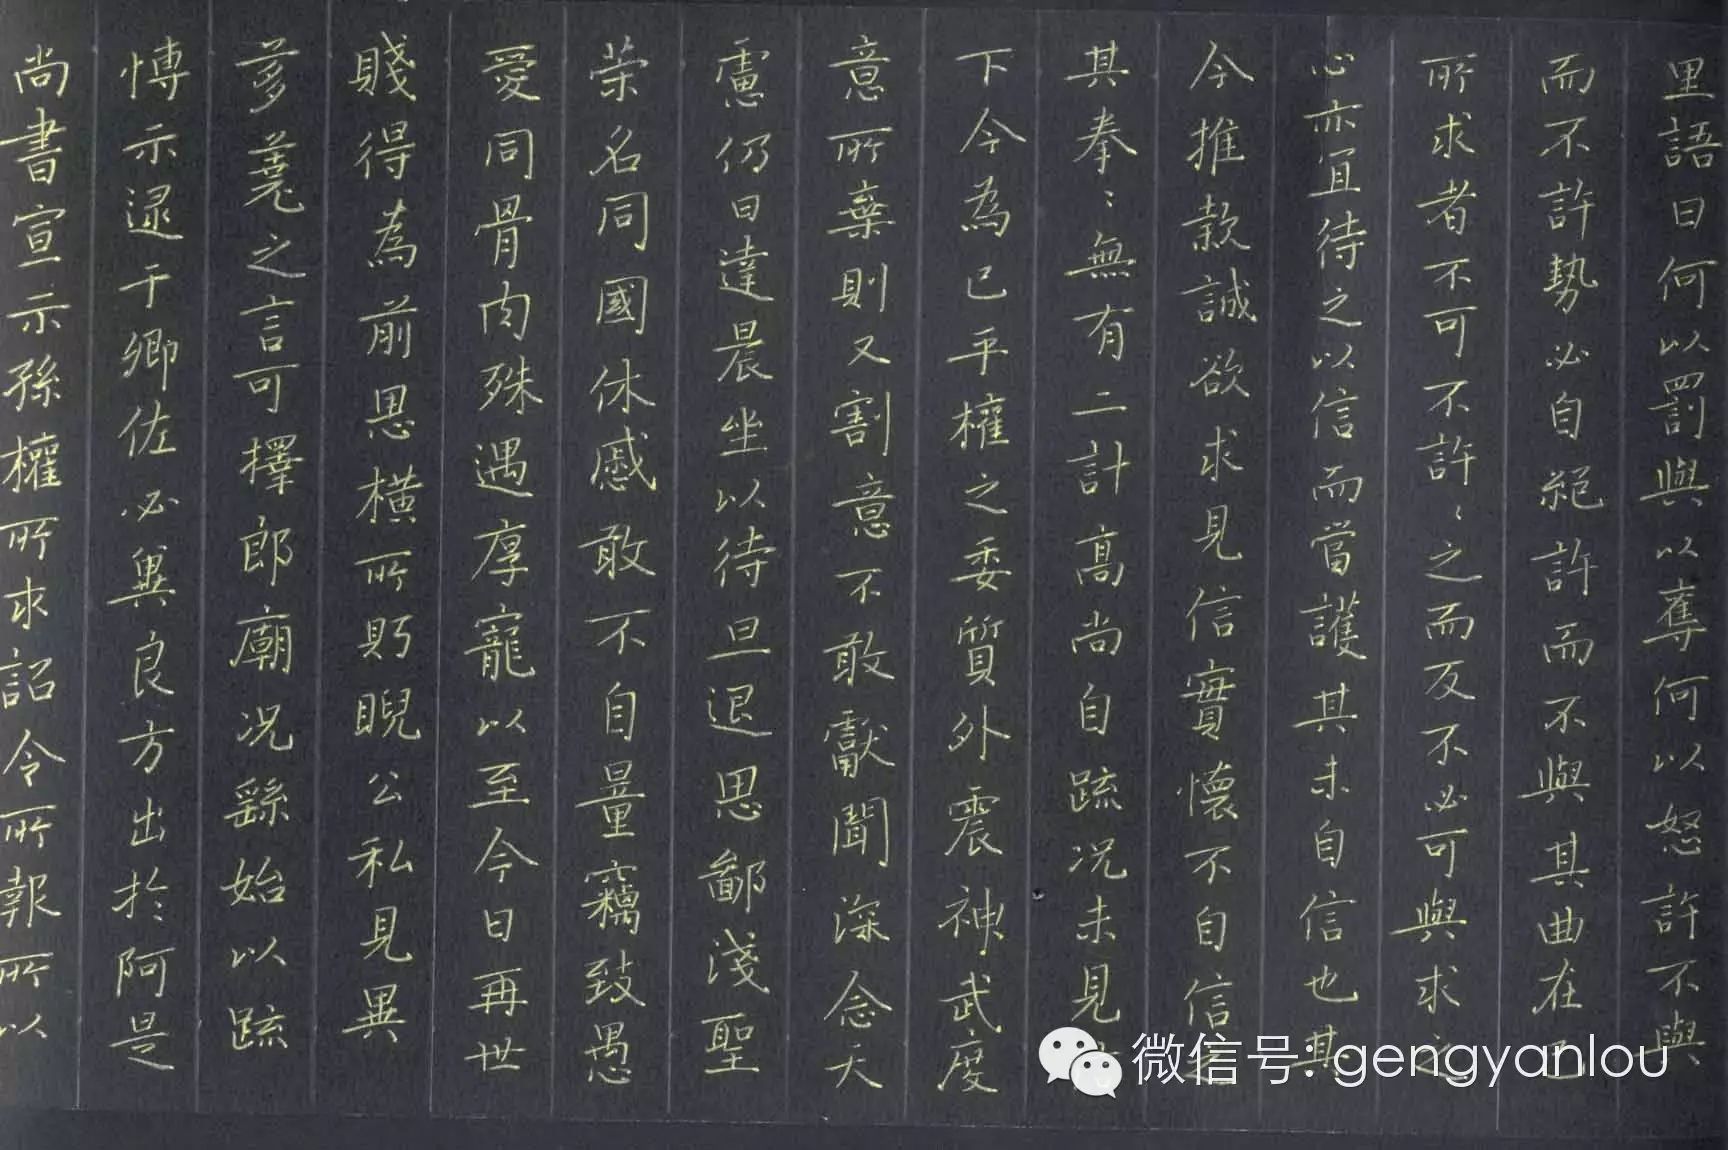 尚書宣示孫權所求詔令所報所以
愽示逮于卿佐必冀良方出於阿是
茤蕘之言可擇郎廟況繇始以疏
賤得為前恩橫所眄睨公私見異
愛同骨肉殊遇厚寵以至今日再世
荣名同國休慼敢不自量竊致愚
慮仍日達晨坐以待旦退思鄙淺聖
意所棄則又割意不敢獻聞深念天
下今為已平權之委質外震神武度
其拳〻無有二計高尚自疏況未見
今推款誠欲求見信實懷不自信之
心亦宜待之以信而當護其未自信也其
所求者不可不許〻之而反不必可與求之
而不許勢必自絕許而不與其曲在己
里語曰何以罰與以奪何以怒許不與
微信号: gengyanlou